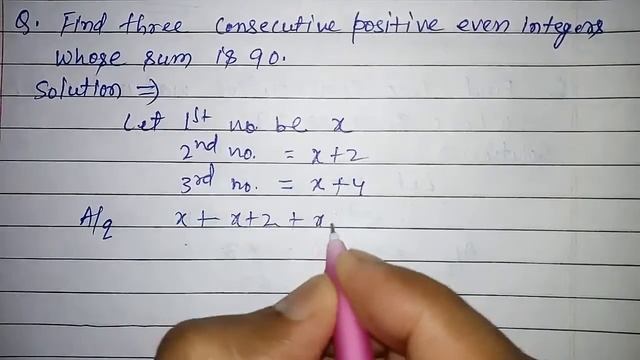 Q. Find three consecutive positive even integers
whose sum is 90.
Solution ⇒
Let 1st no be x
2nd no. = x+2
3rd no. = x+4
A/q x + x+2 + x